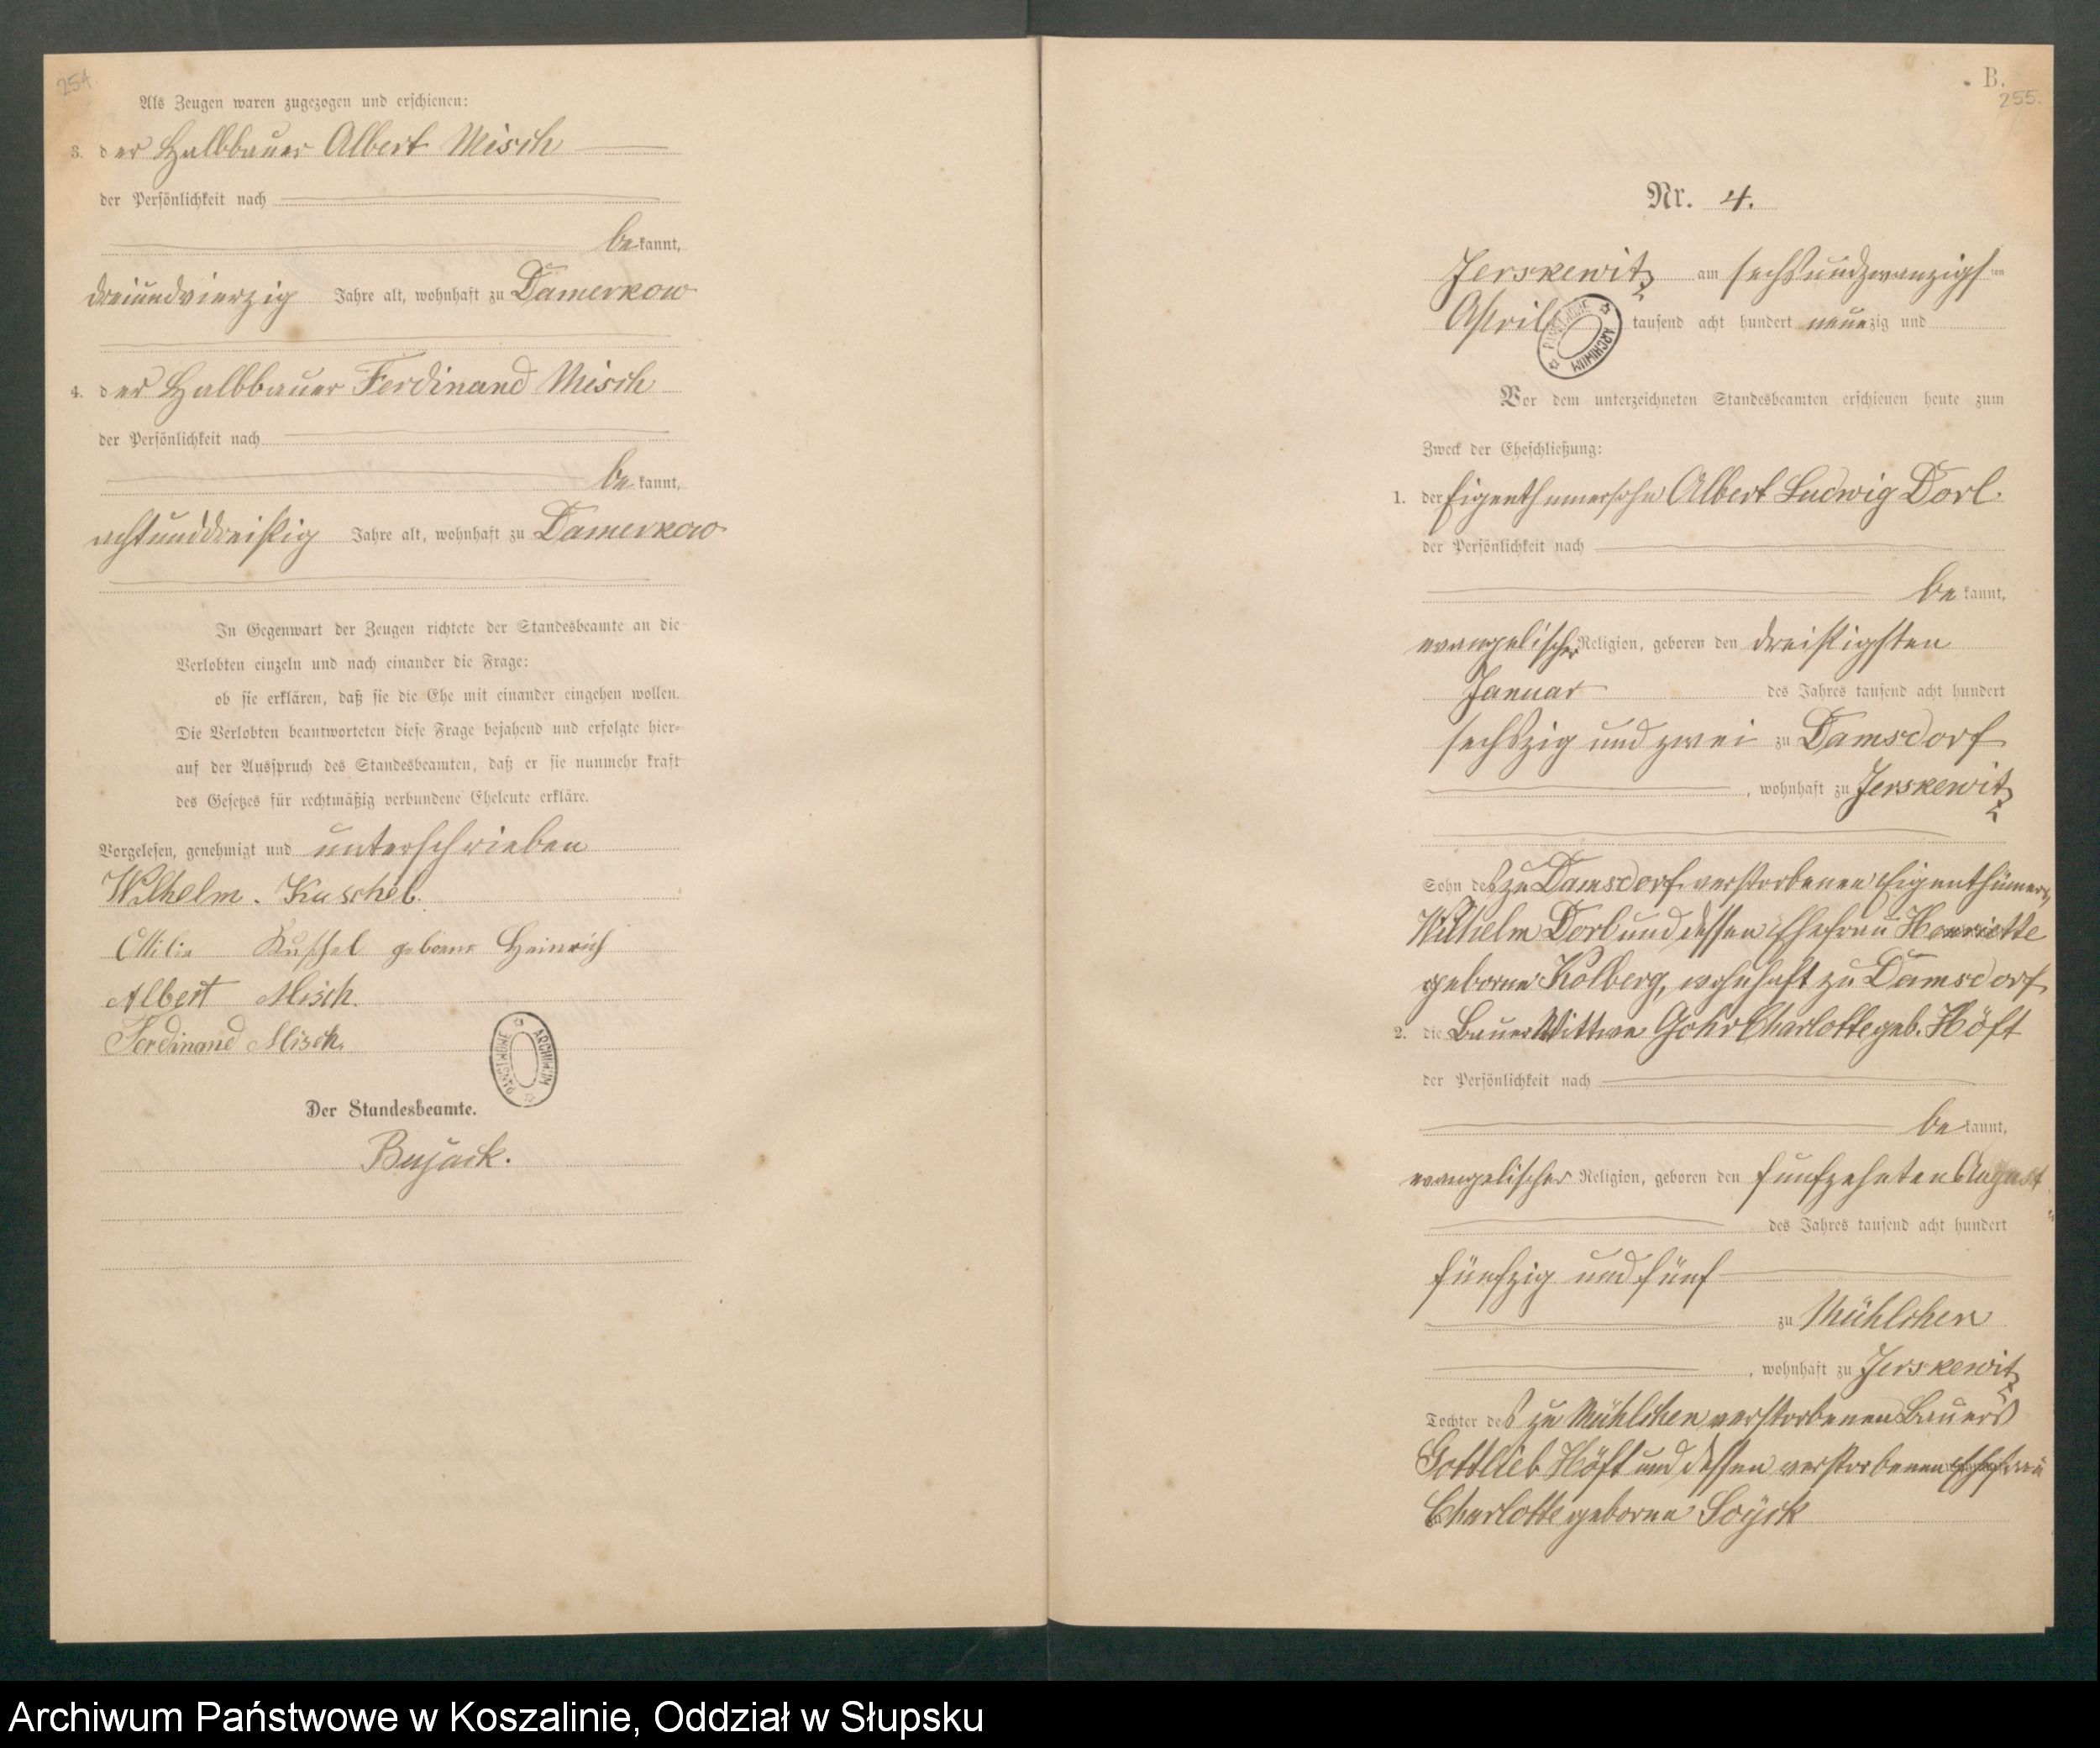 254.
Als Zeugen waren zugezogen und erschienen:
3. der Halbbauer Albert Misch
der Persönlichkeit nach
bekannt,
dreiundvierzig Jahre alt, wohnhaft zu Damerkow
4. der Halbbauer Ferdinand Misch
der Persönlichkeit nach
bekannt,
achtunddreißig Jahre alt, wohnhaft zu Damerkow
In Gegenwart der Zeugen richtete der Standesbeamte an die
Verlobten einzeln und nach einander die Frage:
ob sie erklären, daß sie die Ehe mit einander eingehen wollen.
Die Verlobten beantworteten diese Frage bejahend und erfolgte hier-
auf der Ausspruch des Standesbeamten, daß er sie nunmehr kraft
des Gesetzes für rechtmäßig verbundene Eheleute erkläre.
Vorgelesen, genehmigt und unterschrieben
Wilhelm. Kuschel.
Kuschel geborne Heinrich
Albert Misch.
Ferdinand Misch.
PAŃSTWOWE ARCHIWUM
Der Standesbeamte.
Bujack.
B.
255.
Nr. 4.
Jerskewitz am sechsundzwanzigsten
April tausend acht hundert neunzig und
PAŃSTWOWE ARCHIWUM
Vor dem unterzeichneten Standesbeamten erschienen heute zum
Zweck der Eheschließung:
1. der Eigenthümersohn Albert Ludwig Dorl
der Persönlichkeit nach
bekannt,
evangelischer Religion, geboren den dreißigsten
Januar des Jahres tausend acht hundert
sechszig und zwei zu Damsdorf
, wohnhaft zu Jerskewitz
Sohn des zu Damsdorf verstorbenen Eigenthümers
Wilhelm Dorl und dessen Ehefrau Henriette
geborne Kolberg, wohnhaft zu Damsdorf
2. die Bauer Wittwe Gohr Charlotte geb. Höft
der Persönlichkeit nach
bekannt,
evangelischer Religion, geboren den funfzehnten August
des Jahres tausend acht hundert
fünfzig und fünf
zu Mühlchen
, wohnhaft zu Jerskewitz
Tochter des zu Mühlchen verstorbenen Bauers
Gottlieb Höft und dessen verstorbenen Ehefrau
Charlotte geborne Soyck
Archiwum Państwowe w Koszalinie, Oddział w Słupsku